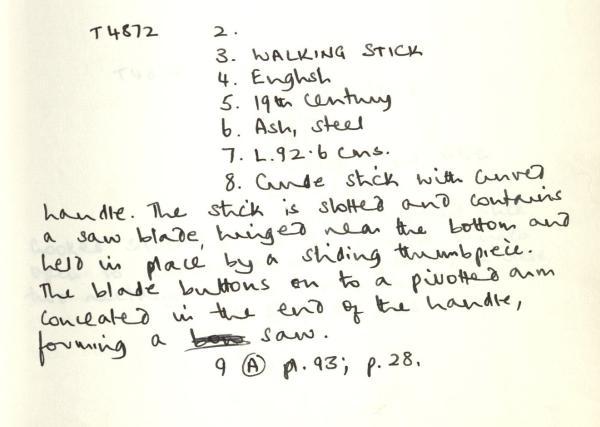 T4872 2.
3. WALKING STICK
4. English
5. 19th century
6. Ash, steel
7. L.92.6 cms.
8. Crude stick with curved
handle. The stick is slotted and contains
a saw blade, hinged near the bottom and
held in place by a sliding thumbpiece.
The blade buttons on to a pivotted arm
concealed in the end of the handle,
forming a saw.
9 (A) pl. 93; p. 28.